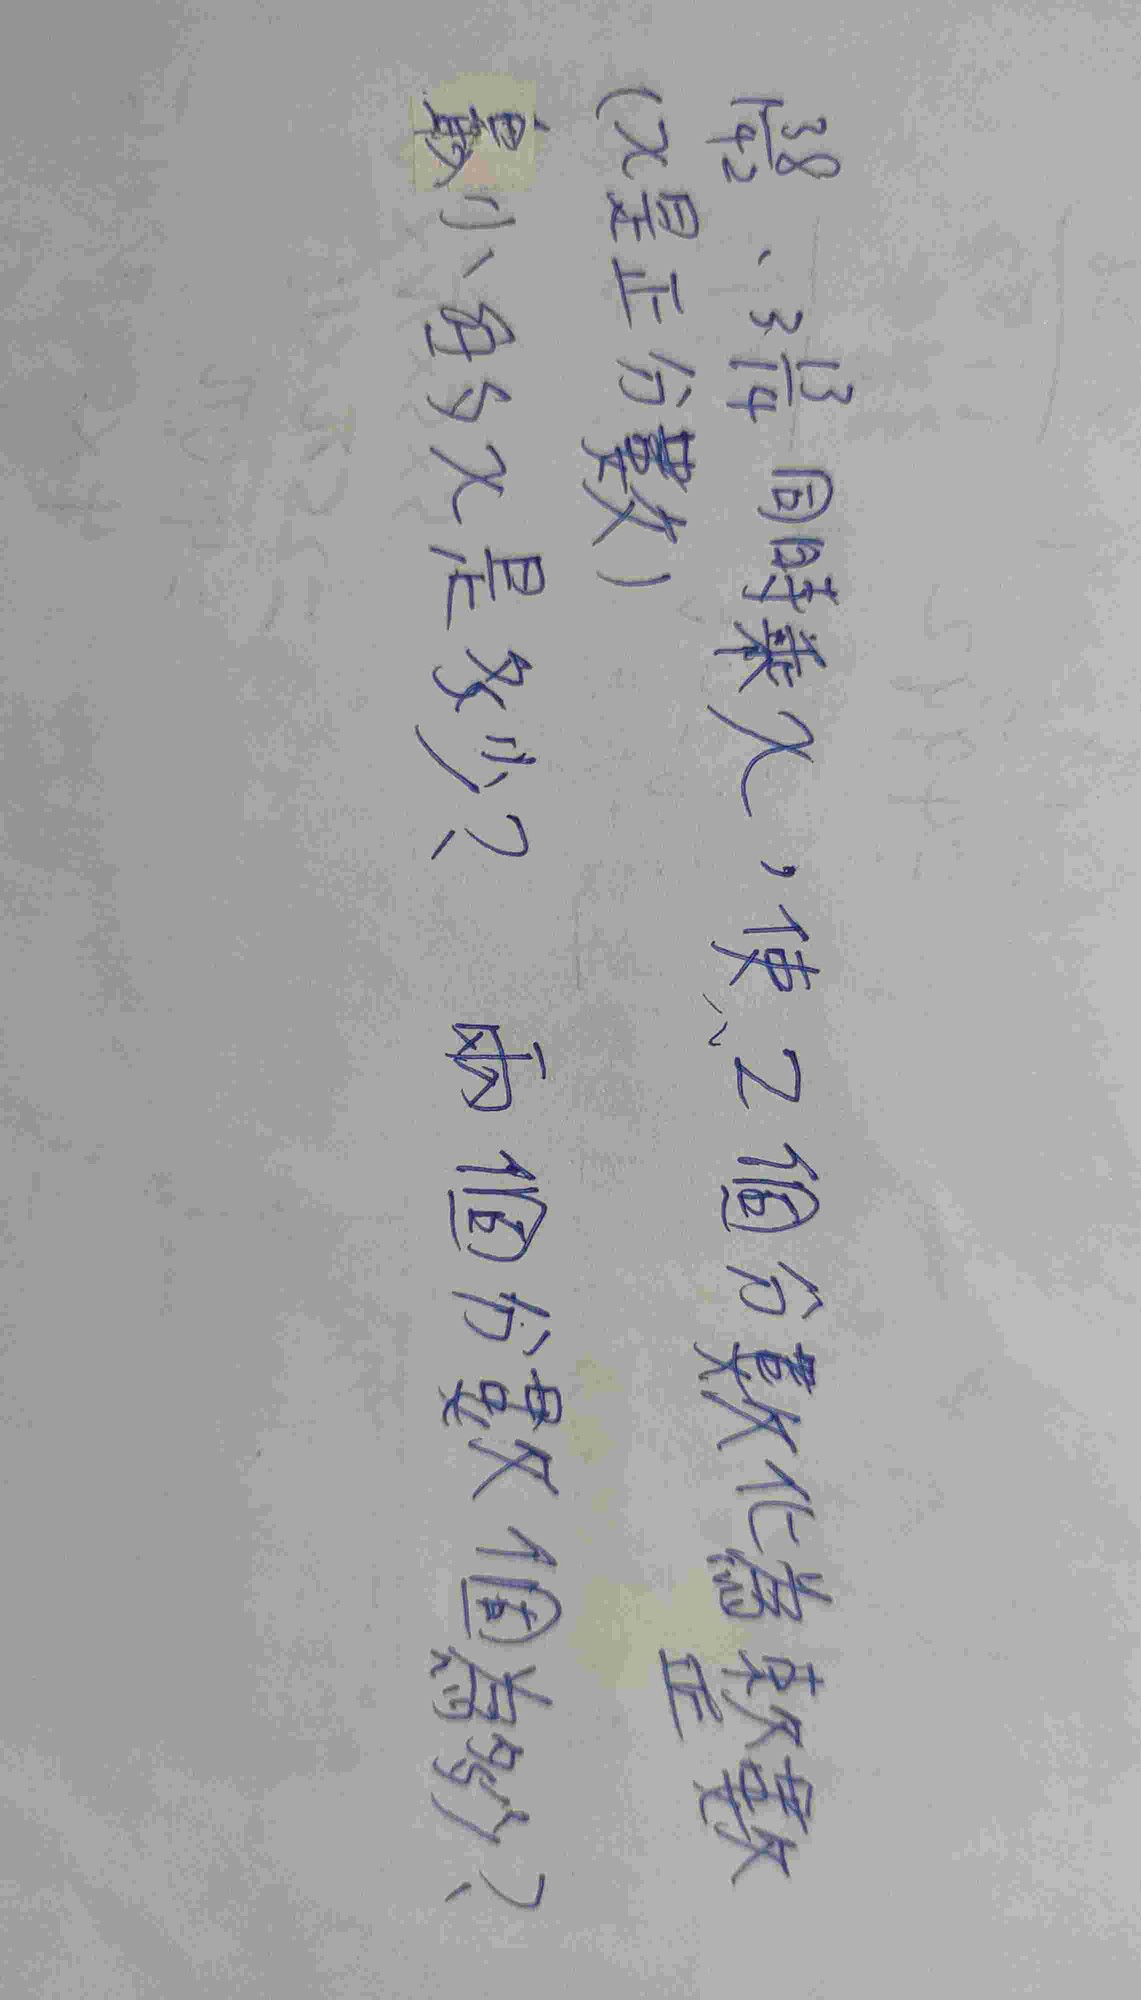 38/42、3 13/14 同時乘x，使2個分數化為整數
(x是正分數)
最小的x是多少？ 兩個分數個為多少？